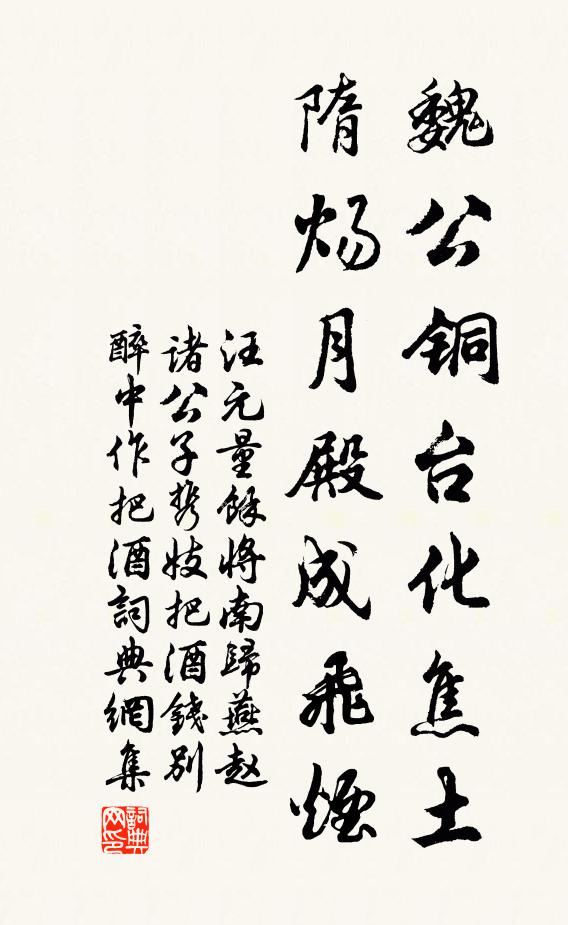 魏公铜台化焦土
隋炀月殿成飛煙
汪元量餘将南歸燕赵
诸公子携妓把酒錢别
醉中作把酒詞典網集
詞典网印